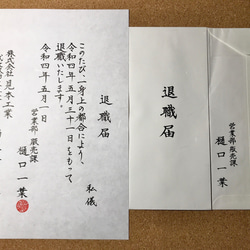 退職届
私儀
このたび、一身上の都合により、
令和四年五月三十一日をもって
退職いたします。
令和四年五月一日
営業部 販売課
樋口一葉
株式会社 見本工業
退職届
営業部 販売課
樋口一葉